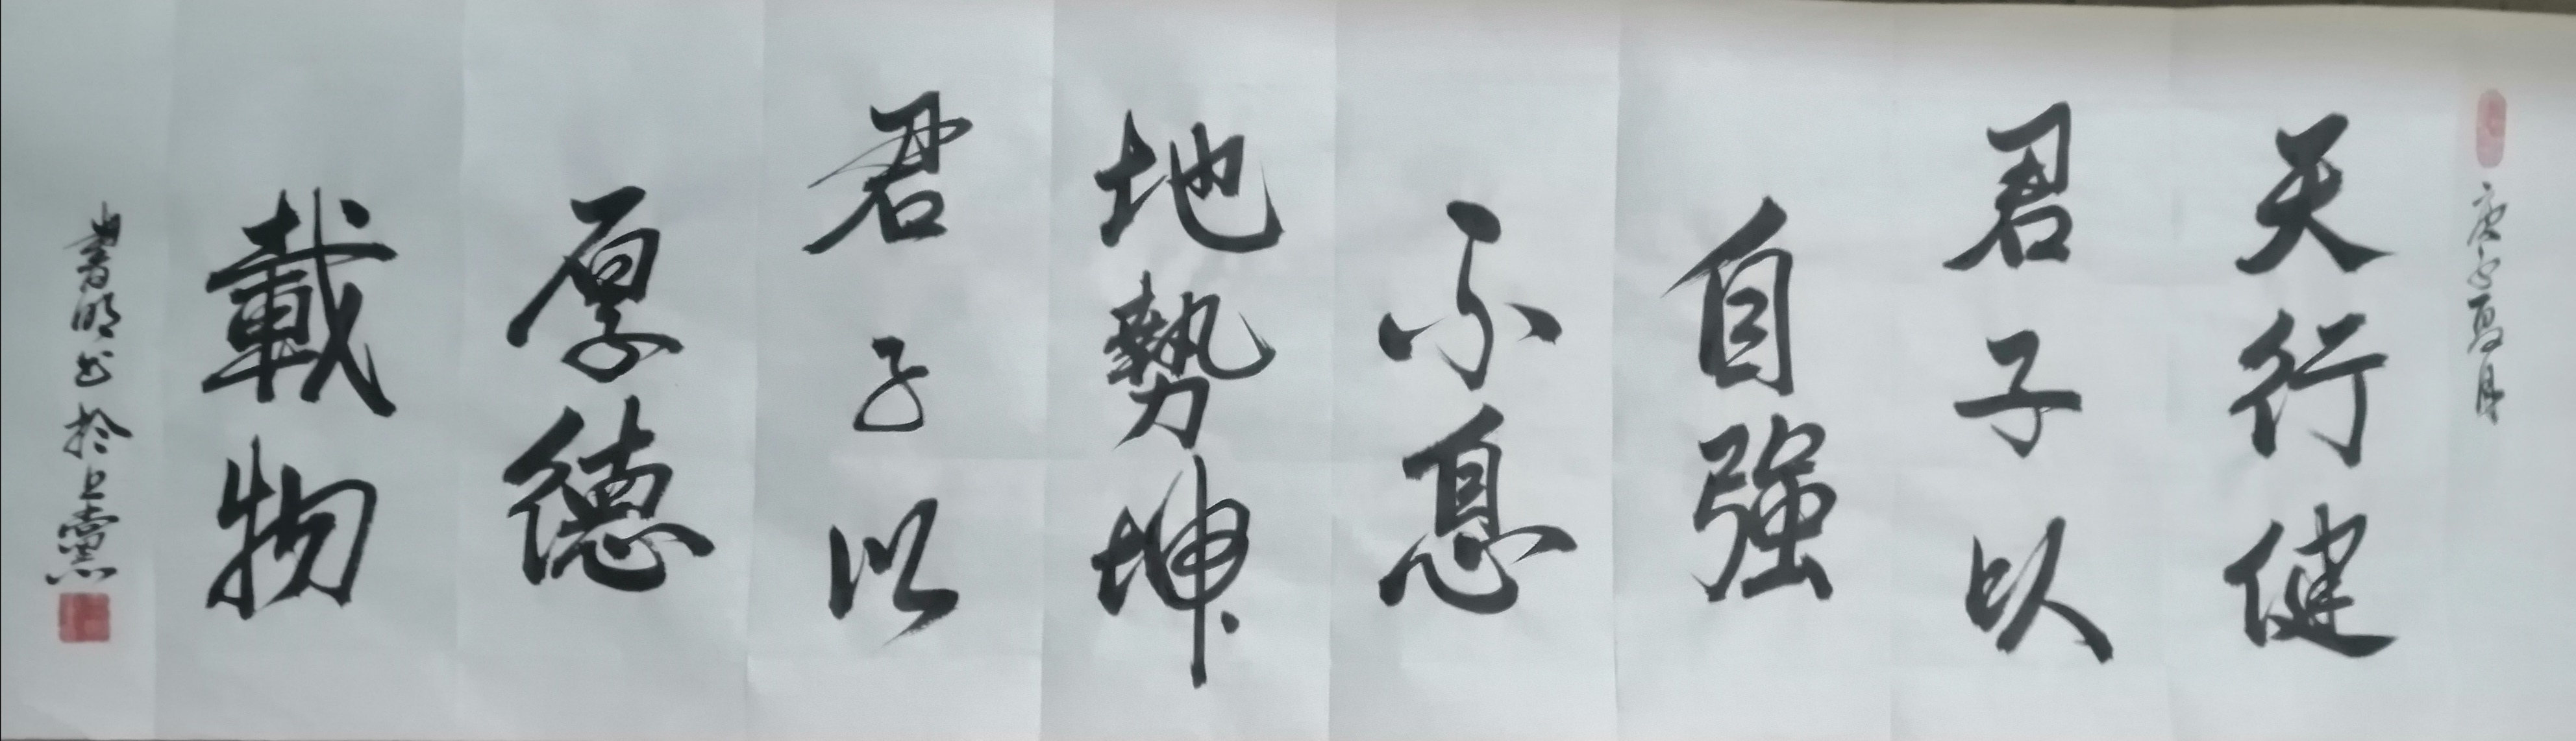 庚子夏月
天行健
君子以
自強
不息
地勢坤
君子以
厚德
載物
書明书於上黨